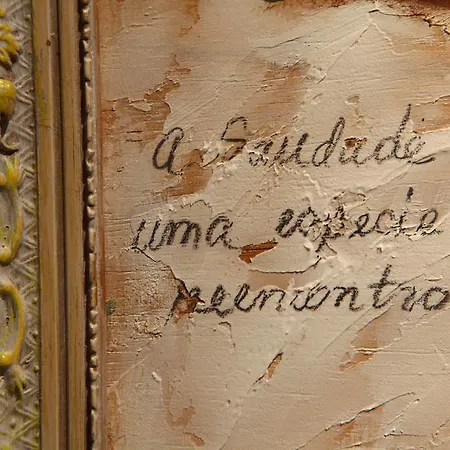 A Saudade é
uma espécie
reencontro